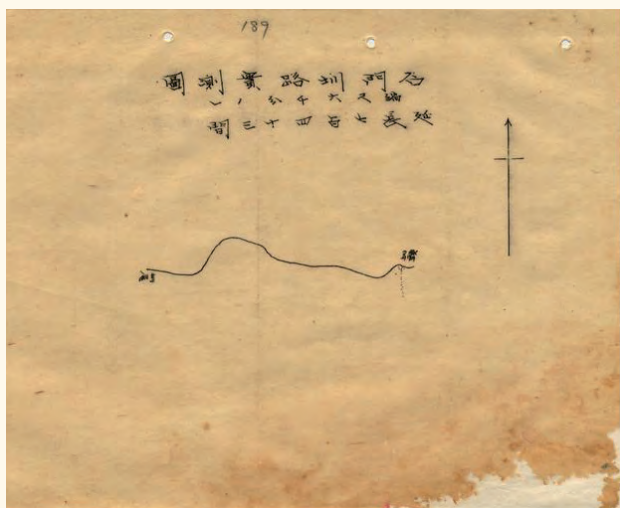 189
圳路實測圖
縮尺六千分ノ一
延長七百四十三間